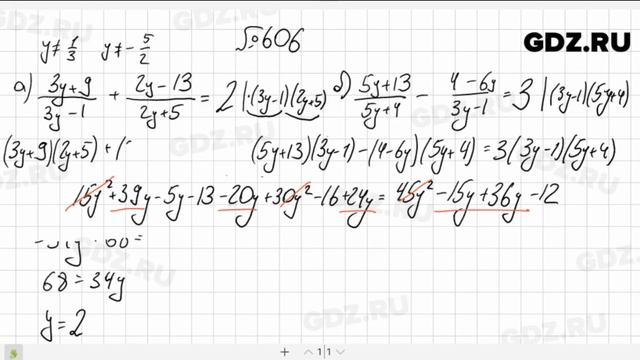 №606
GDZ.RU
y≠1/3 y≠-5/2
а) (3y+9)/(3y-1) + (2y-13)/(2y+5) = 2 |·(3y-1)(2y+5)
б) (5y+13)/(5y+4) - (4-6y)/(3y-1) = 3 |(3y-1)(5y+4)
(3y+9)(2y+5)+(
(5y+13)(3y-1)-(4-6y)(5y+4)=3(3y-1)(5y+4)
15y²+39y-5y-13-20y+30y²-16+24y=45y²-15y+36y-12
68=34y
y=2
1|1